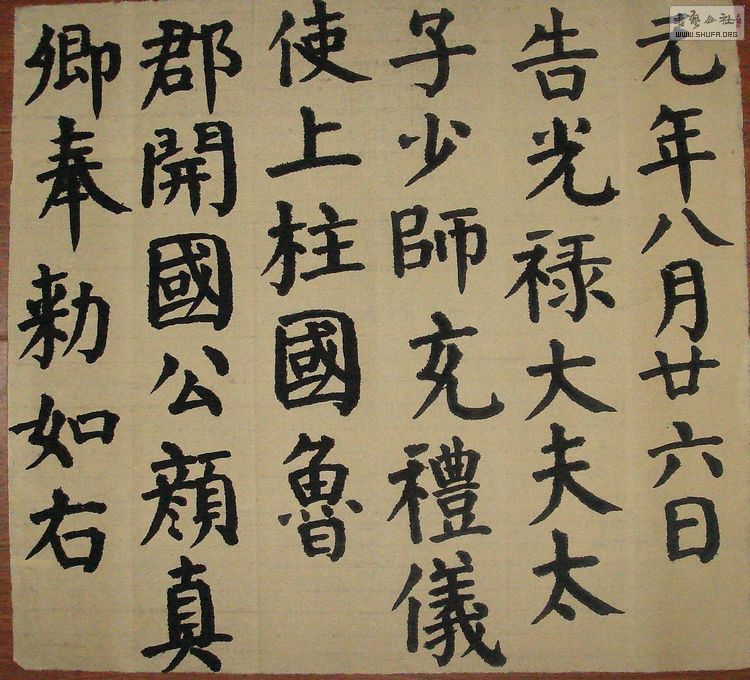 元年八月廿六日
告光禄大夫太
子少師充禮儀
使上柱國魯
郡開國公顔真
卿奉勑如右
書藝公社
WWW.SHUFA.ORG